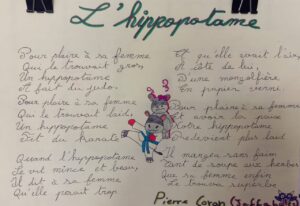 L'hippopotame
Pour plaire à sa femme
Qui le trouvait gros
Un hippopotame
A fait du judo.
Pour plaire à sa femme
Qui le trouvait laid,
Un hippopotame
Fit du karaté
Quand l'hippopotame
Se vit mince et beau,
Il dit à sa femme
Qu'elle parait trop
Et qu'elle avait l'air,
A côté de lui,
D'une mongolfière
En papier verni.
Pour plaire à sa femme
Et avoir la paix
Notre hippopotame
Redevient plus laid
Il mangea sans faim
Tant de soupe aux herbes
Que sa femme enfin
Le trouva superbe
Pierre Coran